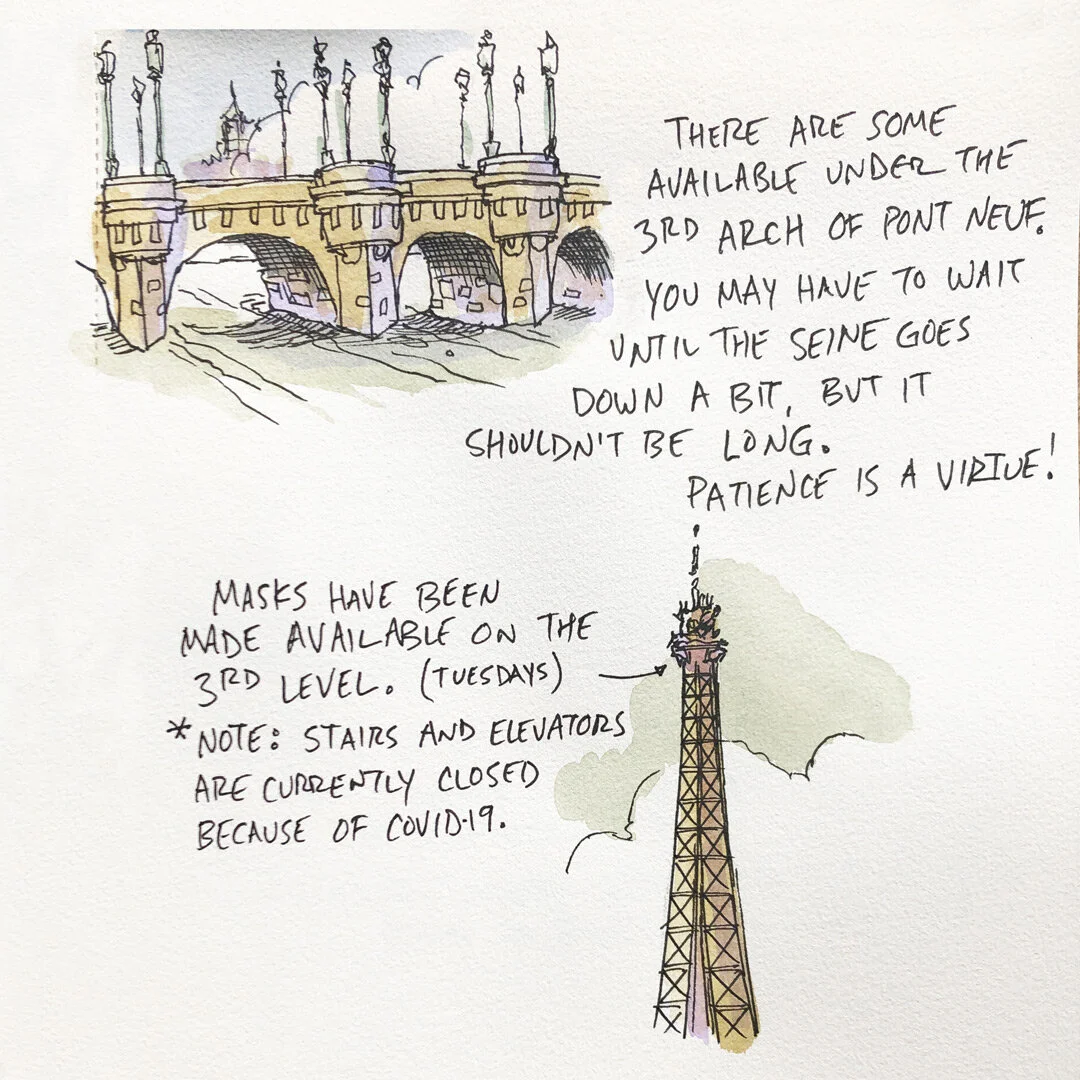 THERE ARE SOME
AVAILABLE UNDER THE
3RD ARCH OF PONT NEUF.
YOU MAY HAVE TO WAIT
UNTIL THE SEINE GOES
DOWN A BIT, BUT IT
SHOULDN'T BE LONG.
PATIENCE IS A VIRTUE!
MASKS HAVE BEEN
MADE AVAILABLE ON THE
3RD LEVEL. (TUESDAYS)
*NOTE: STAIRS AND ELEVATORS
ARE CURRENTLY CLOSED
BECAUSE OF COVID-19.